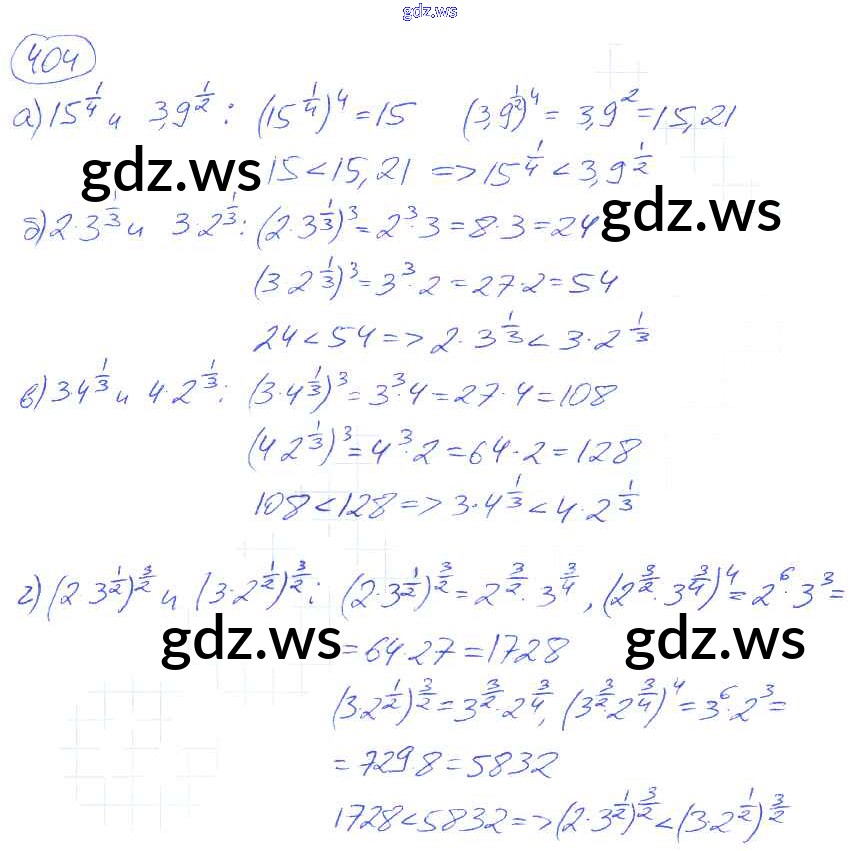 gdz.ws
404
а) 15^(1/4) и 3,9^(1/2) : (15^(1/4))^4 = 15 (3,9^(1/2))^4 = 3,9^2 = 15,21
gdz.ws 15 < 15,21 => 15^(1/4) < 3,9^(1/2) gdz.ws
б) 2·3^(1/3) и 3·2^(1/3) : (2·3^(1/3))^3 = 2^3·3 = 8·3 = 24
(3·2^(1/3))^3 = 3^3·2 = 27·2 = 54
24 < 54 => 2·3^(1/3) < 3·2^(1/3)
в) 3·4^(1/3) и 4·2^(1/3) : (3·4^(1/3))^3 = 3^3·4 = 27·4 = 108
(4·2^(1/3))^3 = 4^3·2 = 64·2 = 128
108 < 128 => 3·4^(1/3) < 4·2^(1/3)
г) (2·3^(1/2))^(3/2) и (3·2^(1/2))^(3/2) : (2·3^(1/2))^(3/2) = 2^(3/2)·3^(3/4), (2^(3/2)·3^(3/4))^4 = 2^6·3^3 =
gdz.ws = 64·27 = 1728 gdz.ws
(3·2^(1/2))^(3/2) = 3^(3/2)·2^(3/4), (3^(3/2)·2^(3/4))^4 = 3^6·2^3 =
= 729·8 = 5832
1728 < 5832 => (2·3^(1/2))^(3/2) < (3·2^(1/2))^(3/2)